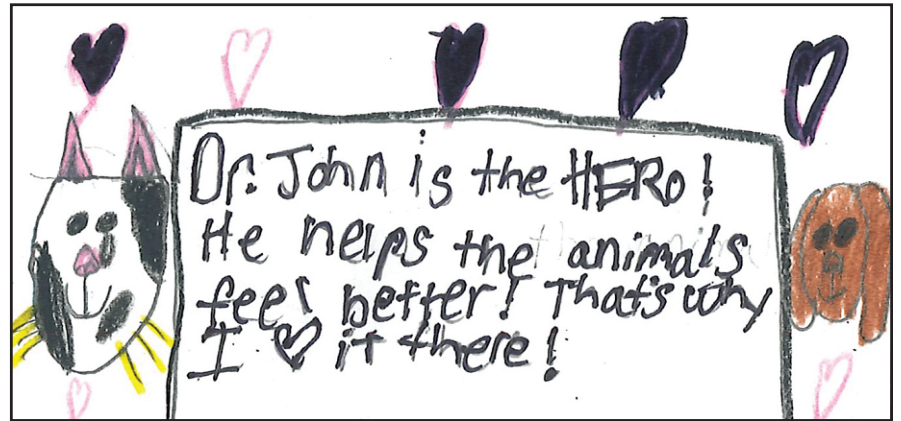 Dr. John is the HERO!
He helps the animals
feel better! That's why
I ♡ it there!